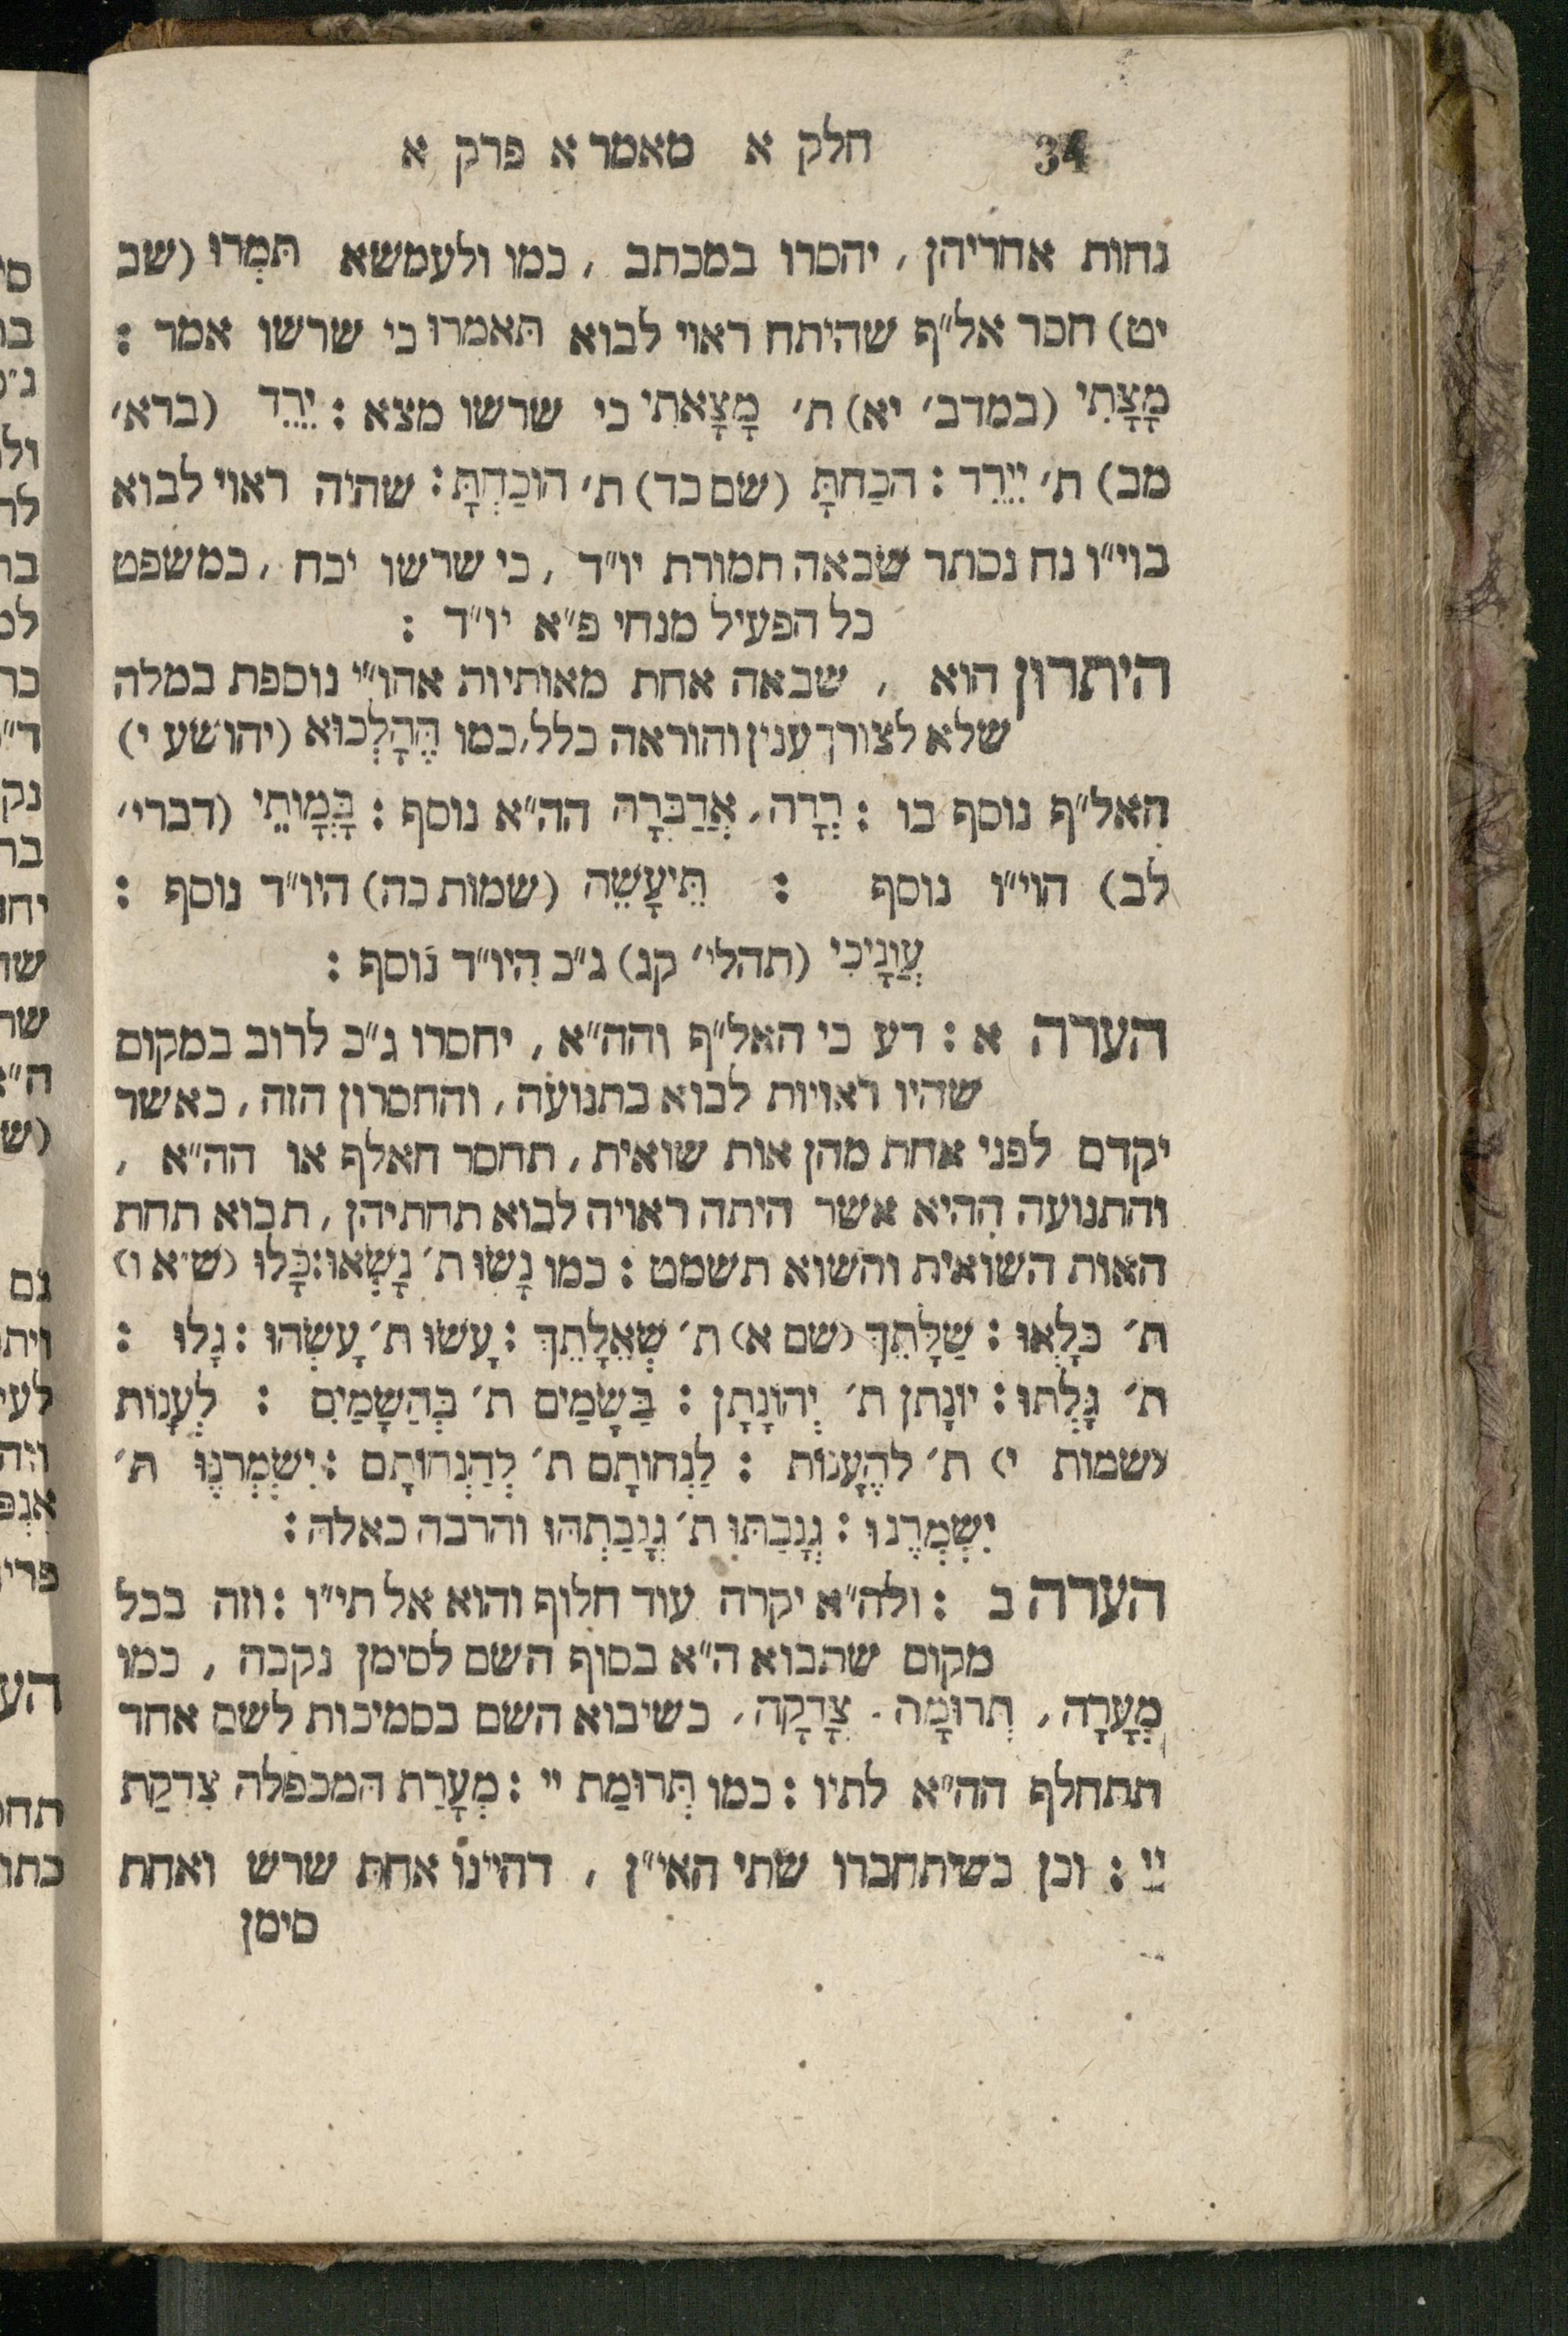 34 חלק א מאמר א פרק א
נחות אחריהן, יחסרו במכתב, כמו ולעמשא תֹּמְרוּ (שב
יט) חסר אל״ף שהיתה ראוי לבוא תאמרו כי שרשו אמר :
מָצָתִי (במדב׳ יא) ת׳ מָצָאתִי כי שרשו מצא : יֵרֵד (ברא׳
מב) ת׳ יֵירֵד : הֹכַחתָּ (שם כד) ת׳ הוכַחְתָּ : שהיה ראוי לבוא
בוי״ו נח נסתר שבאה תמורת יו״ד, כי שרשו יכח, כמשפט
כל הפעיל מנחי פ״א יו״ד :
היתרון הוא, שבאה אחת מאותיות אהו״י נוספת במלה
שלא לצורך ענין והוראה כלל, כמו הֶהָלְכוּא (יהושע י)
האל״ף נוסף בו : רְדָה, אֲדַבְּרָה הה״א נוסף : בָּמֳותֵי (דברי׳
לב) הוי״ו נוסף : תֵּיעָשֶׂה (שמות כה) היו״ד נוסף :
עֲוֹנָיכִי (תהלי׳ קג) ג״כ היו״ד נוסף :
הערה א : דע כי האל״ף והה״א, יחסרו ג״כ לרוב במקום
שהיו ראויות לבוא בתנועה, והחסרון הזה, כאשר
יקדם לפני אחת מהן אות שואית, תחסר האלף או הה״א,
והתנועה ההיא אשר היתה ראויה לבוא תחתיהן, תבוא תחת
האות השואית והשוא תשמט : כמו נָשׂוּ ת׳ נָשְׂאוּ : כָּלוּ (ש״א ו)
ת׳ כָּלְאוּ : שֵׁלָּתֵךְ (שם א) ת׳ שְׁאֵלָתֵךְ : עָשׂוּ ת׳ עָשְׂהוּ : גָלוּ :
ת׳ גָּלְתוּ : יוֹנָתן ת׳ יְהוֹנָתָן : בַּשָּׁמַיִם ת׳ בְּהַשָּׁמַיִם : לֵעָנוֹת
(שמות י) ת׳ להֵעָנוֹת : לַנְחוֹתָם ת׳ לְהַנְחוֹתָם : יִשְׁמְרֶנּוּ ת׳
יִשְׁמְרֶנְהוּ : גְנָבַתּוּ ת׳ גְנָבַתְהוּ והרבה כאלה :
הערה ב : ולה״א יקרה עוד חלוף והוא אל תי״ו : וזה בכל
מקום שתבוא ה״א בסוף השם לסימן נקבה, כמו
מְעָרָה, תְּרוּמָה, צְדָקָה, כשיבוא השם בסמיכות לשם אחר
תתחלף הה״א לתיו : כמו תְּרוּמַת יי : מְעָרַת המכפלה צִדְקַת
יי : וכן כשיתחברו שתי האי״ן, דהיינו אחת שרש ואחת
סימן